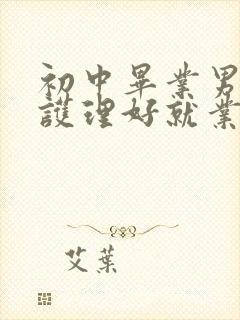 初中畢業男
護理好就業
艾葉